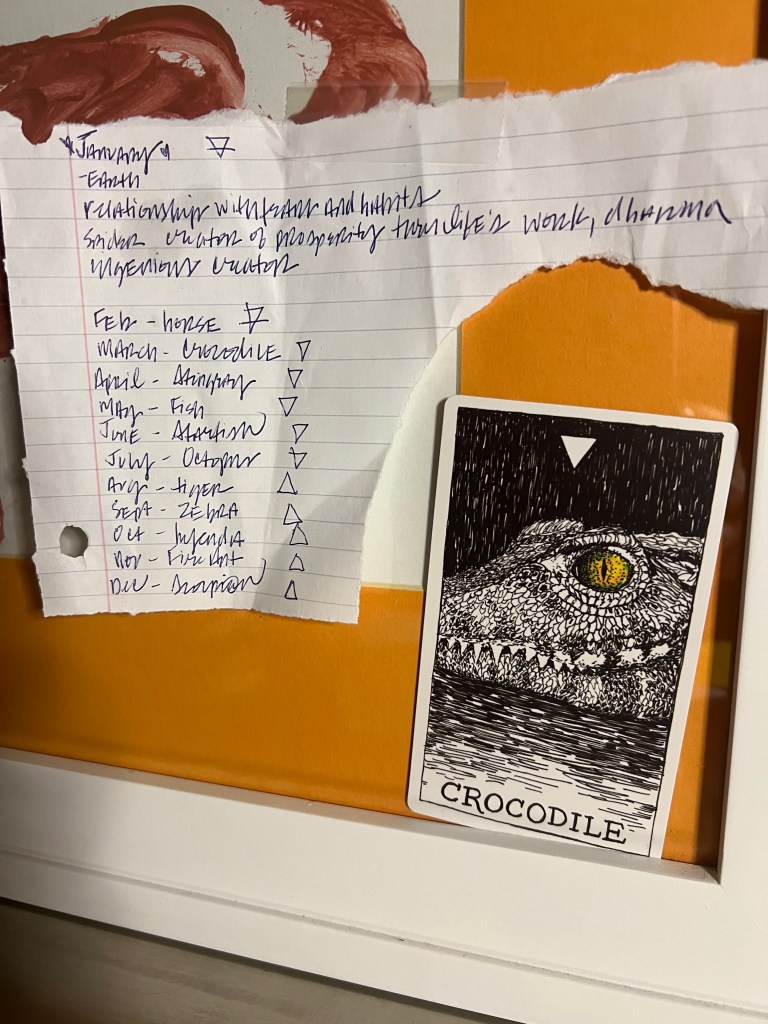 January
-Earth
relationship with fears and habits
Spider creator of prosperity turn life's work, dharma
ingenious creator
Feb - horse
March - Crocodile
April - Stingray
May - Fish
June - Starfish
July - Octopus
Aug - tiger
Sept - Zebra
Oct -
Nov - Fire Ant
Dec - Scorpion
CROCODILE